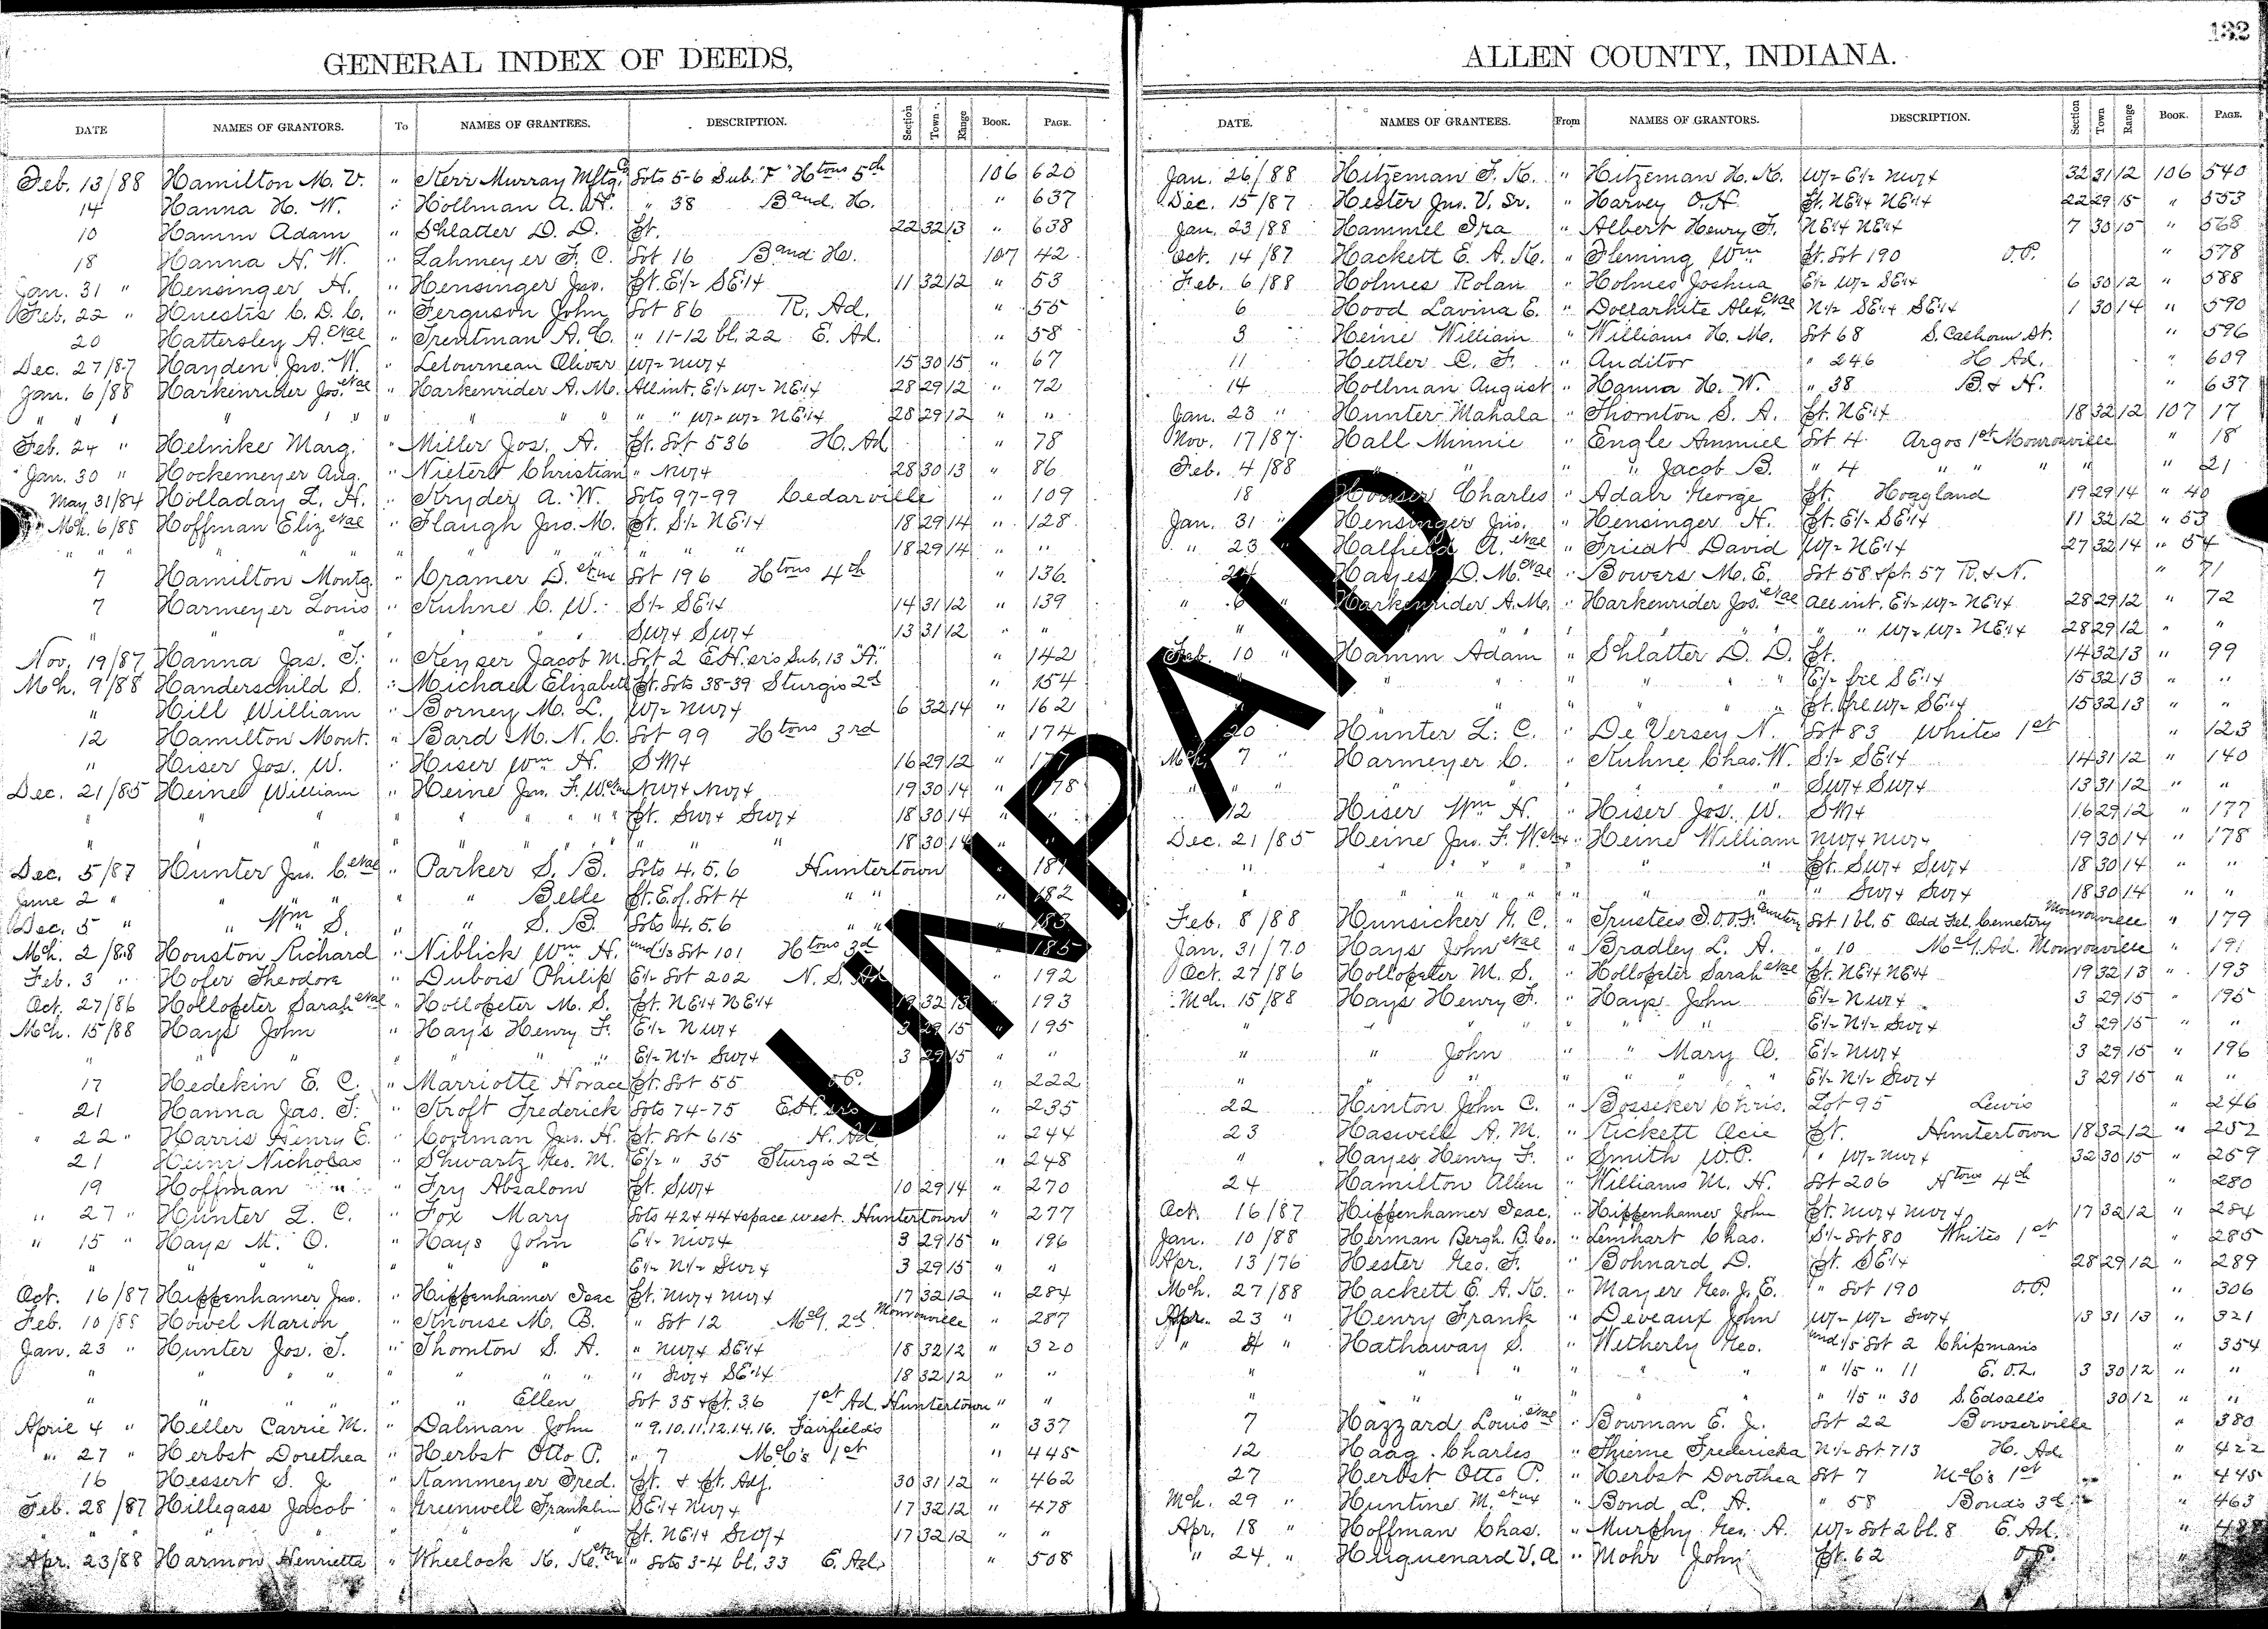 132
GENERAL INDEX OF DEEDS,
DATE NAMES OF GRANTORS. To NAMES OF GRANTEES. DESCRIPTION. Section Town Range BOOK. PAGE.
Feb. 13/88 Hamilton M. V. " Kerr Murray Mfg. Co Lots 5-6 Sub. "F" Htons 5th 106 620
14 Hanna H. W. " Hollman A. " 38 B and H. " 637
10 Hamm Adam " Schlatter D. D. Pt. 22 32 13 " 638
18 Hanna H. W. " Lahmeyer F. C. Lot 16 B and H. 107 42
Jan. 31 " Hensinger H. " Hensinger Jno. Pt. E1/2 SE1/4 11 32 12 " 53
Feb. 22 " Huestis C. D. C. " Ferguson John Lot 86 R. Ad. " 55
20 Hattersley A. etal " Trentman A. C. " 11-12 bl. 22 E. Ad. " 58
Dec. 27/87 Hayden Jno. W. " Letourneau Oliver W1/2 NW1/4 15 30 15 " 67
Jan. 6/88 Harkenrider Jos. etal " Harkenrider A. M. All int. E1/2 W1/2 NE1/4 28 29 12 " 72
" " " " " " " " " W1/2 W1/2 NE1/4 28 29 12 " "
Feb. 24 " Helmke Marg. " Miller Jos. A. Pt. Lot 536 H. Ad " 78
Jan. 30 " Hockemeyer Aug. " Nietert Christian " NW1/4 28 30 13 " 86
May 31/84 Holladay L. H. " Kryder A. W. Lots 97-99 Cedarville " 109
Mch. 6/88 Hoffman Eliz etal " Flaugh Jno. M. Pt. S1/2 NE1/4 18 29 14 " 128
" " " " " " " " " " 18 29 14 " "
7 Hamilton Montg. " Cramer D. etux Lot 196 Htons 4th " 136
7 Harmeyer Louis " Kuhne C. W. S1/2 SE1/4 14 31 12 " 139
" " " " " SW1/4 SW1/4 13 31 12 " "
Nov. 19/87 Hanna Jas. T. " Keyser Jacob M. Lot 2 E.H.ers Sub. 13 "A" " 142
Mch. 9/88 Handerschild S. " Michael Elizabeth Pt. Lots 38-39 Sturgis 2d " 154
" Hill William " Borney M. L. W1/2 NW1/4 6 32 14 " 162
12 Hamilton Mont. " Bard M. N. C. Lot 99 Htons 3rd " 174
" Hiser Jos. W. " Hiser Wm H. 16 29 12 " 177
Dec. 21/85 Heine William " Heine Jno. F. W. etux NW1/4 NW1/4 19 30 14 " 178
" " " " " " Pt. SW1/4 SW1/4 18 30 14 " "
" " " " " " " " 18 30 14 " "
Dec. 5/87 Hunter Jno. C. etal " Parker S. B. Lots 4.5.6 Huntertown " 181
June 2 " " " " " " Belle Pt. E. of. Lot 4 " " " 182
Dec. 5 " " Wm S. " " S. B. Lots 4.5.6 " " " 183
Mch. 2/88 Houston Richard " Niblick Wm H. und 1/3 Lot 101 Htons 3d " 185
Feb. 3 " Hofer Theodore " Dubois Philip E1/2 Lot 202 N. S. Ad " 192
Oct. 27/86 Hollopeter Sarah etal " Hollopeter M. S. Pt. NE1/4 NE1/4 19 32 13 " 193
Mch. 15/88 Hays John " Hays Henry F. E1/2 NW1/4 3 29 15 " 195
" " " " " " E1/2 N1/2 SW1/4 3 29 15 " "
17 Hedekin E. C. " Marriotte Horace Pt. Lot 55 O.P. " 222
21 Hanna Jas. T. " Kroft Frederick Lots 74-75 E.H.er's " 235
" 22 " Harris Henry E. " Coolman Jno. H. Pt. Lot 615 H. Ad " 244
21 Heine Nicholas " Schwartz Geo. M. E1/2 " 35 Sturgis 2d " 248
19 Hoffman " " Fry Absalom Pt. SW1/4 10 29 14 " 270
" 27 " Hunter L. C. " Fox Mary Lots 42+44+space west. Huntertown " 277
" 15 " Hays M. O. " Hays John E1/2 NW1/4 3 29 15 " 196
" " " " " " E1/2 N1/2 SW1/4 3 29 15 " "
Oct. 16/87 Hippenhamer Jno. " Hippenhamer Isac Pt. NW1/4 NW1/4 17 32 12 " 284
Feb. 10/88 Howel Marion " Knouse M. B. " Lot 12 McG. 2d Monroeville " 287
Jan. 23 " Hunter Jos. T. " Thornton S. A. " NW1/4 SE1/4 18 32 12 " 320
" " " " " " " " SW1/4 SE1/4 18 32 12 " "
" " " " " " Ellen Lot 35 + Pt. 36 1st Ad. Huntertown " "
April 4 " Heller Carrie M. " Dalman John " 9.10.11.12.14.16. Fairfield's " 337
" 27 " Herbst Dorethea " Herbst Otto P. " 7 McC's 1st " 445
16 Hessert S. J. " Kammeyer Fred. Pt. & Pt. Adj. 30 31 12 " 462
Feb. 28/87 Hillegass Jacob " Greenwell Franklin SE1/4 NW1/4 17 32 12 " 478
" " " " " " Pt. NE1/4 SW1/4 17 32 12 " "
Apr. 23/88 Harmon Henrietta " Wheelock K. K. etux " Lots 3-4 bl. 33 E. Ad. " 508
ALLEN COUNTY, INDIANA.
DATE. NAMES OF GRANTEES. From NAMES OF GRANTORS. DESCRIPTION. Section Town Range BOOK. PAGE.
Jan. 26/88 Hitzeman F. K. " Hitzeman H. K. W1/2 E1/2 NW1/4 32 31 12 106 540
Dec. 15/87 Hester Jno. V. Sr. " Harvey O. H. Pt. NE1/4 NE1/4 22 29 15 " 553
Jan. 23/88 Hammel Ira " Albert Henry F. NE1/4 NE1/4 7 30 15 " 568
Oct. 14/87 Hackett E. A. K. " Fleming Wm Pt. Lot 190 O.P. " 578
Feb. 6/88 Holmes Rolan " Holmes Joshua E1/2 W1/2 SE1/4 6 30 12 " 588
6 Hood Lavina E. " Dollarhite Alex. etal N1/2 SE1/4 SE1/4 1 30 14 " 590
3 Heine William " Williams H. M. Lot 68 S. Calhoun St. " 596
11 Hettler C. F. " Auditor " 246 H Ad. " 609
14 Hollman August " Hanna H. W. " 38 B. & H. " 637
Jan. 23 " Hunter Mahala " Thornton S. A. Pt. NE1/4 18 32 12 107 17
Nov. 17/87 Hall Minnie " Engle Ammiel Lot 4 Argos 1st Monroeville " 18
Feb. 4/88 " " " " Jacob B. " 4 " " " " " 21
18 Houser Charles " Adair George Pt. Hoagland 19 29 14 " 40
Jan. 31 " Hensinger Jno. " Hensinger H. Pt. E1/2 SE1/4 11 32 12 " 53
" 23 " Halfield A. etal " Friedt David W1/2 NE1/4 27 32 14 " 54
24 Hayes D. M. etal " Bowers M. E. Lot 58 + pt. 57 R. & N. " 71
" 6 " Harkenrider A. M. " Harkenrider Jos. etal All int. E1/2 W1/2 NE1/4 28 29 12 " 72
" " " " " " " W1/2 W1/2 NE1/4 28 29 12 " "
Feb. 10 " Hamm Adam " Schlatter D. D. Pt. 14 32 13 " 99
" " " " " " E1/2 fre SE1/4 15 32 13 " "
" " " " " Pt. fre W1/2 SE1/4 15 32 13 " "
20 Hunter L. C. " De Versey N. Lot 83 Whites 1st " 123
Mch. 7 " Harmeyer C. " Kuhne Chas. W. S1/2 SE1/4 14 31 12 " 140
" " " " " " SW1/4 SW1/4 13 31 12 " "
12 Hiser Wm H. " Hiser Jos. W. 16 29 12 " 177
Dec. 21/85 Heine Jno. F. W. etux " Heine William NW1/4 NW1/4 19 30 14 " 178
" " " " " " Pt. SW1/4 SW1/4 18 30 14 " "
" " " " " " " SW1/4 SW1/4 18 30 14 " "
Feb. 8/88 Hunsicker G. C. " Trustees I.O.O.F. Cemetery Lot 1 bl. 5 Odd Fel. Cemetery Monroeville " 179
Jan. 31/70 Hays John etal " Bradley L. A. " 10 McG. Ad. Monroeville " 191
Oct. 27/86 Hollopeter M. S. " Hollopeter Sarah etal Pt. NE1/4 NE1/4 19 32 13 " 193
Mch. 15/88 Hays Henry F. " Hays John E1/2 NW1/4 3 29 15 " 195
" " " " " " E1/2 N1/2 SW1/4 3 29 15 " "
" " John " " Mary O. E1/2 NW1/4 3 29 15 " 196
" " " " " " E1/2 N1/2 SW1/4 3 29 15 " "
22 Hinton John C. " Bosseker Chris. Lot 95 Lewis " 246
23 Haswell A. M. " Rickett Ocie Pt. Huntertown 18 32 12 " 252
" Hayes Henry F. " Smith W. P. " W1/2 NW1/4 32 30 15 " 259
24 Hamilton Allen " Williams M. H. Lot 206 Htons 4th " 280
Oct. 16/87 Hippenhamer Isac. " Hippenhamer John Pt. NW1/4 NW1/4 17 32 12 " 284
Jan. 10/88 Herman Bergh. B. Co. " Lenhart Chas. S1/2 Lot 80 Whites 1st " 285
Apr. 13/76 Hester Geo. F. " Bohnard D. Pt. SE1/4 28 29 12 " 289
Mch. 27/88 Hackett E. A. K. " Mayer Geo. J. E. " Lot 190 O.P. " 306
Apr. 23 " Henry Frank " Deveaux John W1/2 W1/2 SW1/4 13 31 13 " 321
" " Hathaway S. " Wetherly Geo. und 1/5 Lot 2 Chipman's " 354
" " " " " " " 1/5 " 11 E. O.L. 3 30 12 " "
" " " " " " " 1/5 " 30 S. Edsall's 30 12 " "
7 Hazzard Louis etal " Bowman E. J. Lot 22 Bowserville " 380
12 Haag Charles " Thieme Fredericka N1/2 Lot 713 H. Ad. " 422
27 Herbst Otto P. " Herbst Dorothea Lot 7 McC's 1st " 445
Mch. 29 " Huntine M. etux " Bond L. A. " 58 Bond's 3d " 463
Apr. 18 " Hoffman Chas. " Murphy Geo. A. W1/2 Lot 2 bl. 8 E. Ad. "
" 24 " Huguenard V. A " Mohr John Pt. 62 O.P.
UNPAID